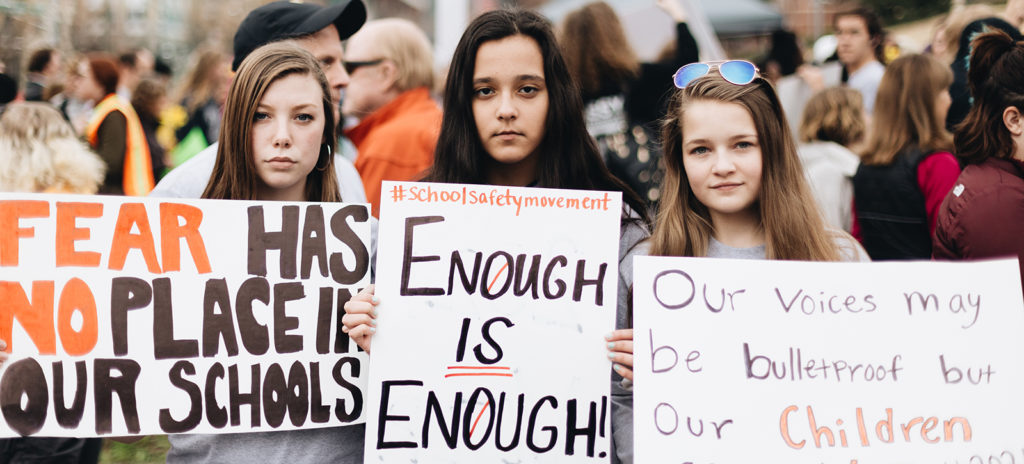 FEAR HAS
NO PLACE IN
OUR SCHOOLS
#schoolsafetymovement
ENOUGH
IS
ENOUGH!
Our voices may
be bulletproof but
Our Children